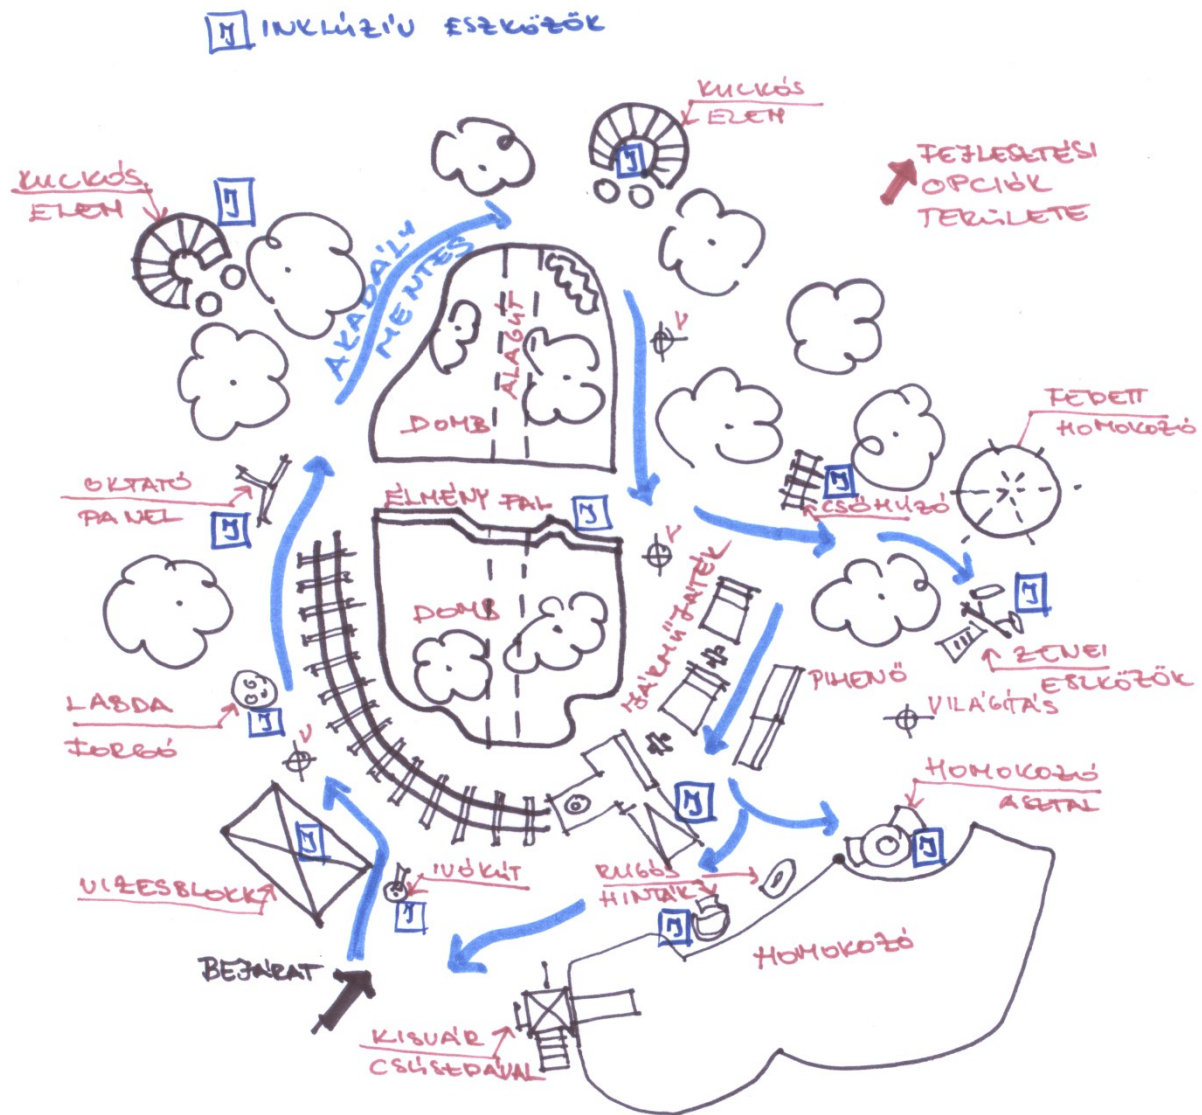 IJ INKLÚZÍV ESZKÖZÖK
KUCKÓS
ELEM
FEJLESZTÉSI
OPCIÓK
TERÜLETE
KUCKÓS
ELEM
IJ
IJ
AKADÁLY
MENTES
ALAGÚT
V
DOMB
FEDETT
HOMOKOZÓ
OKTATÓ
PANEL
IJ
ÉLMÉNY FAL
IJ
IJ
CSŐHÚZÓ
V
JÁRMŰ JÁTÉK
DOMB
IJ
ZENEI
ESZKÖZÖK
PIHENŐ
LABDA
FORGÓ
IJ
V
VILÁGÍTÁS
HOMOKOZÓ
ASZTAL
IJ
IJ
IJ
VIZESBLOKK
IVÓKÚT
IJ
RUGÓS
HINTÁK
IJ
HOMOKOZÓ
BEJÁRAT
KISVÁR
CSÚSZDÁVAL